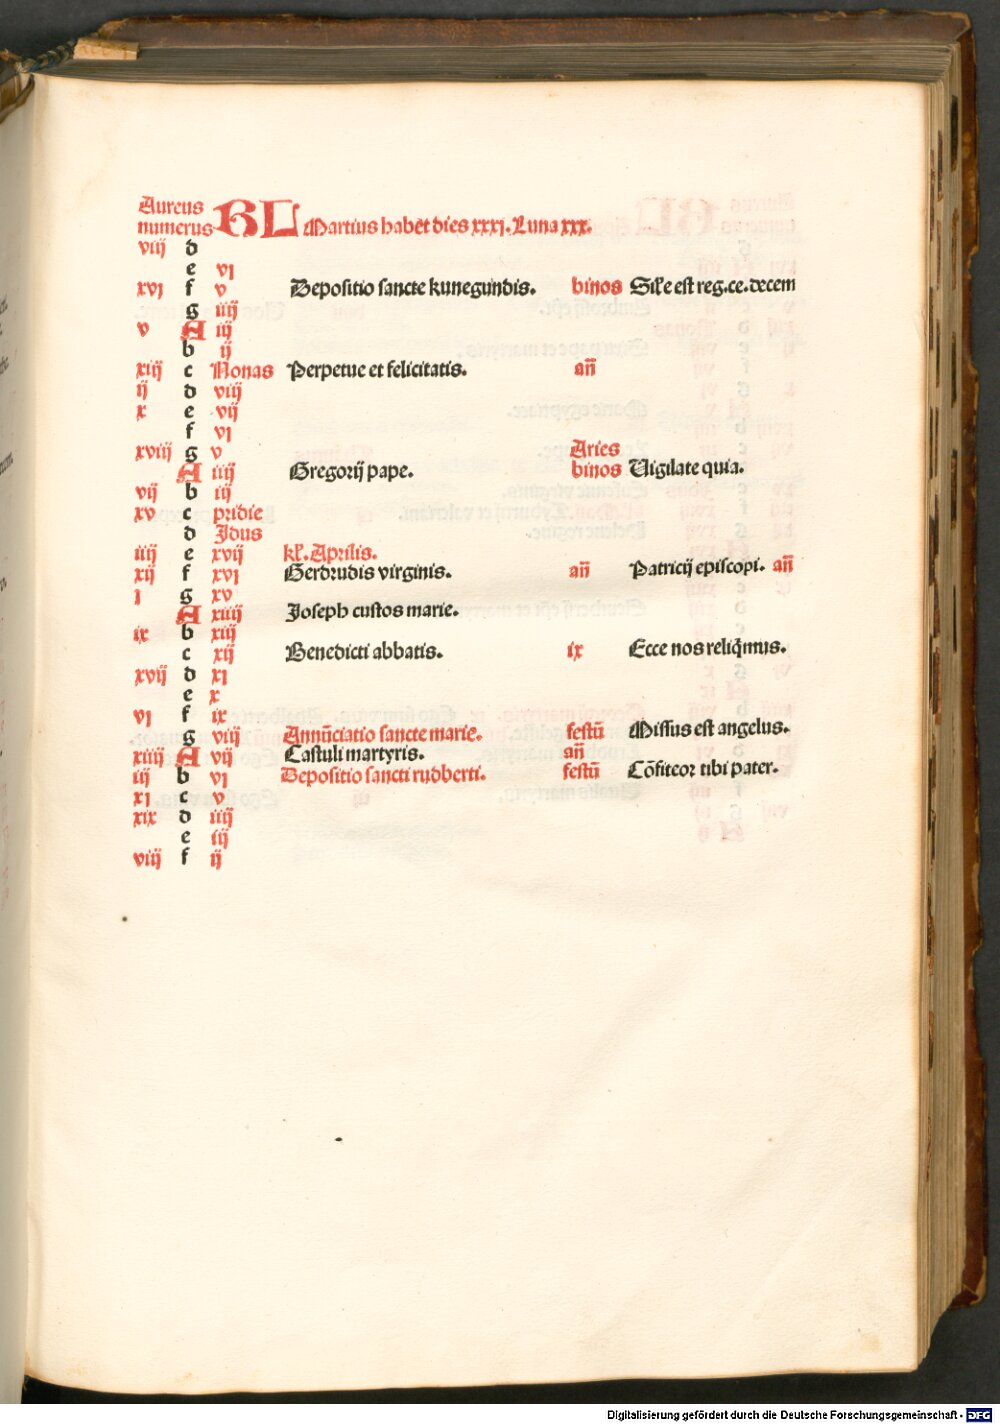 Aureus
numerus KL Martius habēt dies xxxi. Luna xxx.
viij d
e vj
xvj f v Depositio sancte kunegundis. binos Sil'e est reg.ce.decem
g iiij
v A iij
b ij
xiij c Nonas Perpetue et felicitatis. añ
ij d viij
x e vij
f vj
xviij g v Aries
A iiij Gregorij pape. binos Uigilate quia.
vij b iij
xv c pridie
d Jdus
iiij e xvij kl'. Aprilis.
xij f xvj Gerdrudis virginis. añ Patricij episcopi. añ
j g xv
A xiiij Joseph custos marie.
ix b xiij
c xij Benedicti abbatis. ix Ecce nos reliq̇mus.
xvij d xj
e x
vj f ix
g viij Annūciatio sancte marie. festū Missus est angelus.
xiiij A vij Castuli martyris. añ
iij b vj Depositio sancti rudberti. festū Cōfiteor tibi pater.
xj c v
xix d iiij
e iij
viij f ij
Digitalisierung gefördert durch die Deutsche Forschungsgemeinschaft - DFG